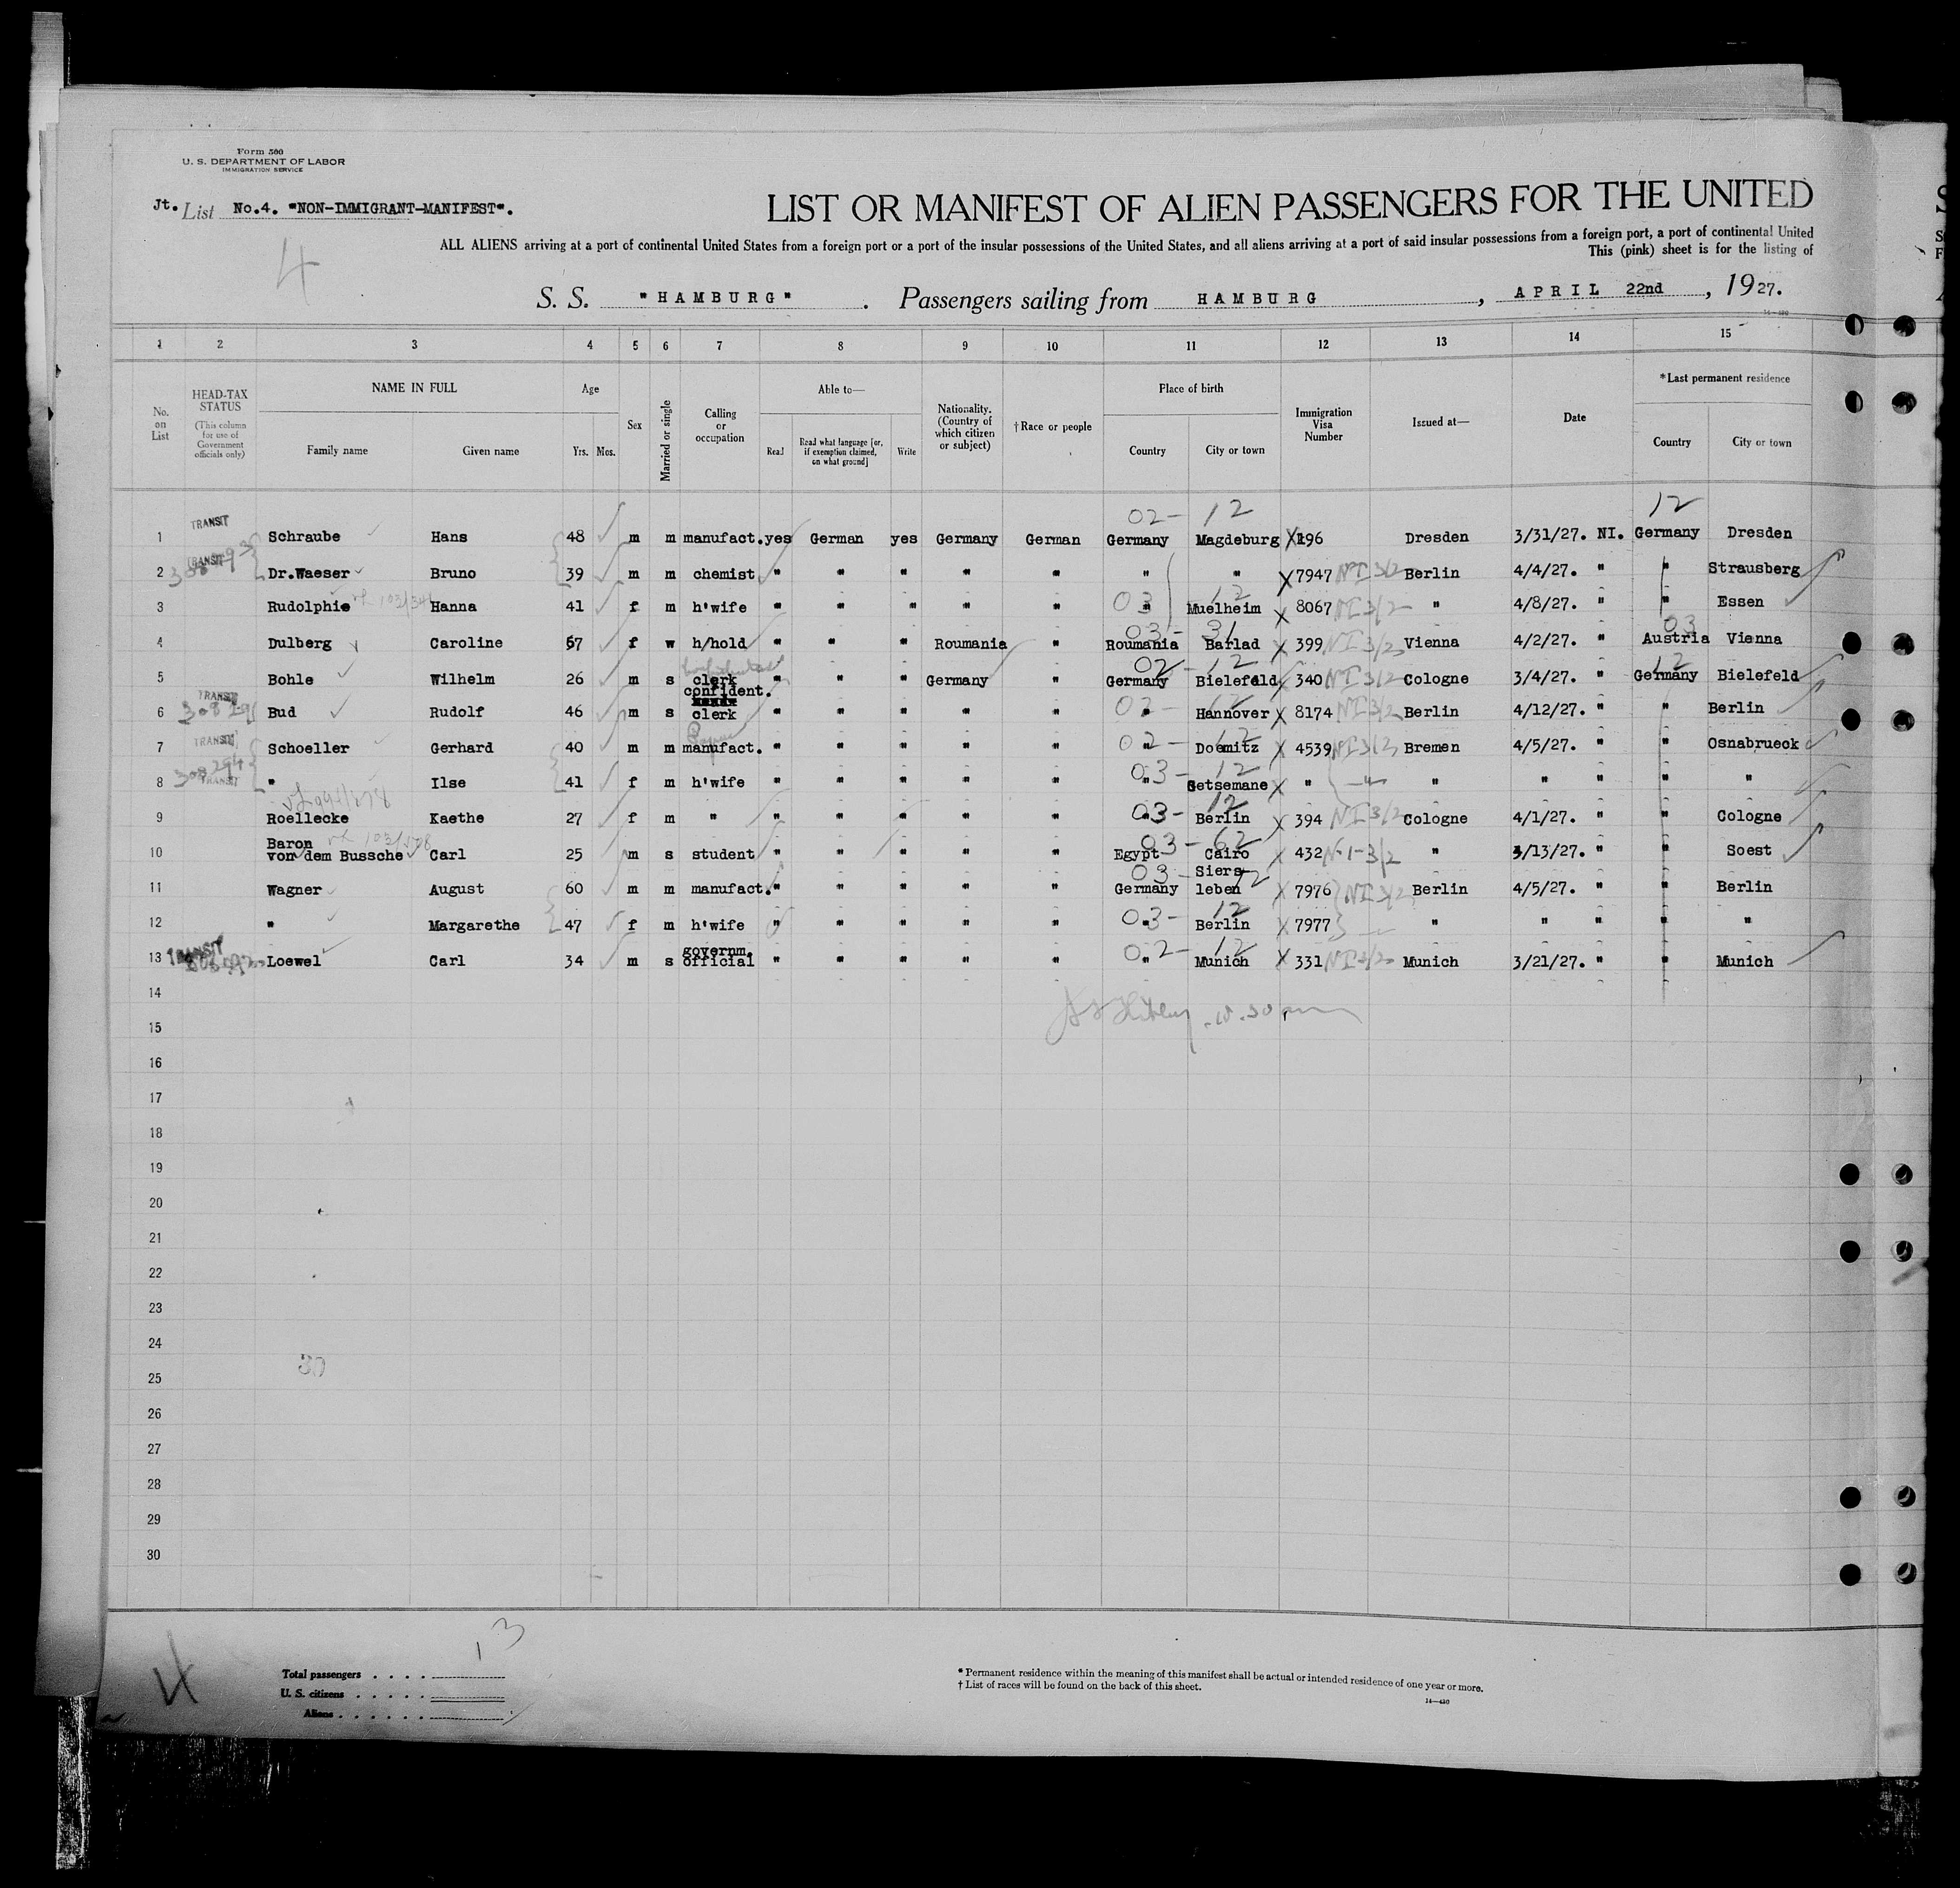 Form 500
U. S. DEPARTMENT OF LABOR
IMMIGRATION SERVICE
Jt. List No.4. "NON-IMMIGRANT-MANIFEST".
4
LIST OR MANIFEST OF ALIEN PASSENGERS FOR THE UNITED
ALL ALIENS arriving at a port of continental United States from a foreign port or a port of the insular possessions of the United States, and all aliens arriving at a port of said insular possessions from a foreign port, a port of continental United
This (pink) sheet is for the listing of
S. S. "HAMBURG". Passengers sailing from HAMBURG, APRIL 22nd, 1927.
1 2 3 4 5 6 7 8 9 10 11 12 13 14 15
No. on List HEAD-TAX STATUS (This column for use of Government officials only) NAME IN FULL Family name Given name Age Yrs. Mos. Sex Married or single Calling or occupation Able to— Read Read what language [or, if exemption claimed, on what ground] Write Nationality. (Country of which citizen or subject) †Race or people Place of birth Country City or town Immigration Visa Number Issued at— Date *Last permanent residence Country City or town
02- 12 12
1 TRANSIT Schraube Hans 48 m m manufact. yes German yes Germany German Germany Magdeburg X 196 Dresden 3/31/27. NI. Germany Dresden
2 TRANSIT Dr.Waeser Bruno 39 m m chemist " " " " " " " X 7947 NI 3/2 Berlin 4/4/27. " " Strausberg
3 Rudolphie Hanna 41 f m h'wife " " " " " 03 " 12 Muelheim X 8067 NI 3/2 " 4/8/27. " " Essen
03- 31 03
4 Dulberg Caroline 57 f w h/hold " " " Roumania " Roumania Barlad X 399 NI 3/2 Vienna 4/2/27. " Austria Vienna
02- 12 12
5 Bohle Wilhelm 26 m s clerk " " " Germany " Germany Bielefeld X 340 NI 3/2 Cologne 3/4/27. " Germany Bielefeld
6 TRANSIT 308291 Bud Rudolf 46 m s confident. clerk " " " " " 02- " 12 Hannover X 8174 NI 3/2 Berlin 4/12/27. " " Berlin
7 TRANSIT Schoeller Gerhard 40 m m manufact. " " " " " 02- " 12 Doemitz X 4539 NI 3/2 Bremen 4/5/27. " " Osnabrueck
8 308294 TRANSIT " Ilse 41 f m h'wife " " " " " 03- " 12 Getsemane X " " " " " "
9 Roellecke Kaethe 27 f m " " " " " " 03- " 12 Berlin X 394 NI 3/2 Cologne 4/1/27. " " Cologne
10 Baron von dem Bussche Carl 25 m s student " " " " " 03- 62 Egypt Cairo X 432 NI-3/2 " 3/13/27. " " Soest
11 Wagner August 60 m m manufact. " " " " " 03- 12 Germany Siersleben X 7976 NI 3/2 Berlin 4/5/27. " " Berlin
12 " Margarethe 47 f m h'wife " " " " " 03- " 12 Berlin X 7977 " " " " "
13 TRANSIT Loewel Carl 34 m s governm. official " " " " " 02- " 12 Munich X 331 NI 3/2 Munich 3/21/27. " " Munich
14
15
16
17
18
19
20
21
22
23
24
30
25
26
27
28
29
30
4
13
Total passengers
U. S. citizens
Aliens
* Permanent residence within the meaning of this manifest shall be actual or intended residence of one year or more.
† List of races will be found on the back of this sheet.
14—430